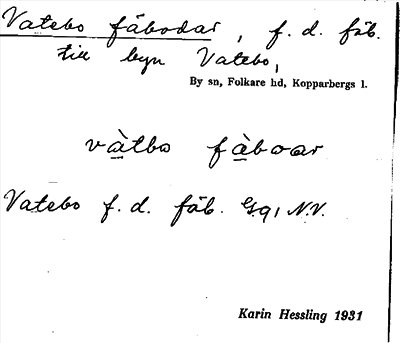 Vatebo fäbodar, f. d. fäb.
till byn Vatebo,
By sn, Folkare hd, Kopparbergs l.
vàtbo fàboar
Vatebo f. d. fäb. G.q, N.V.
Karin Hessling 1931